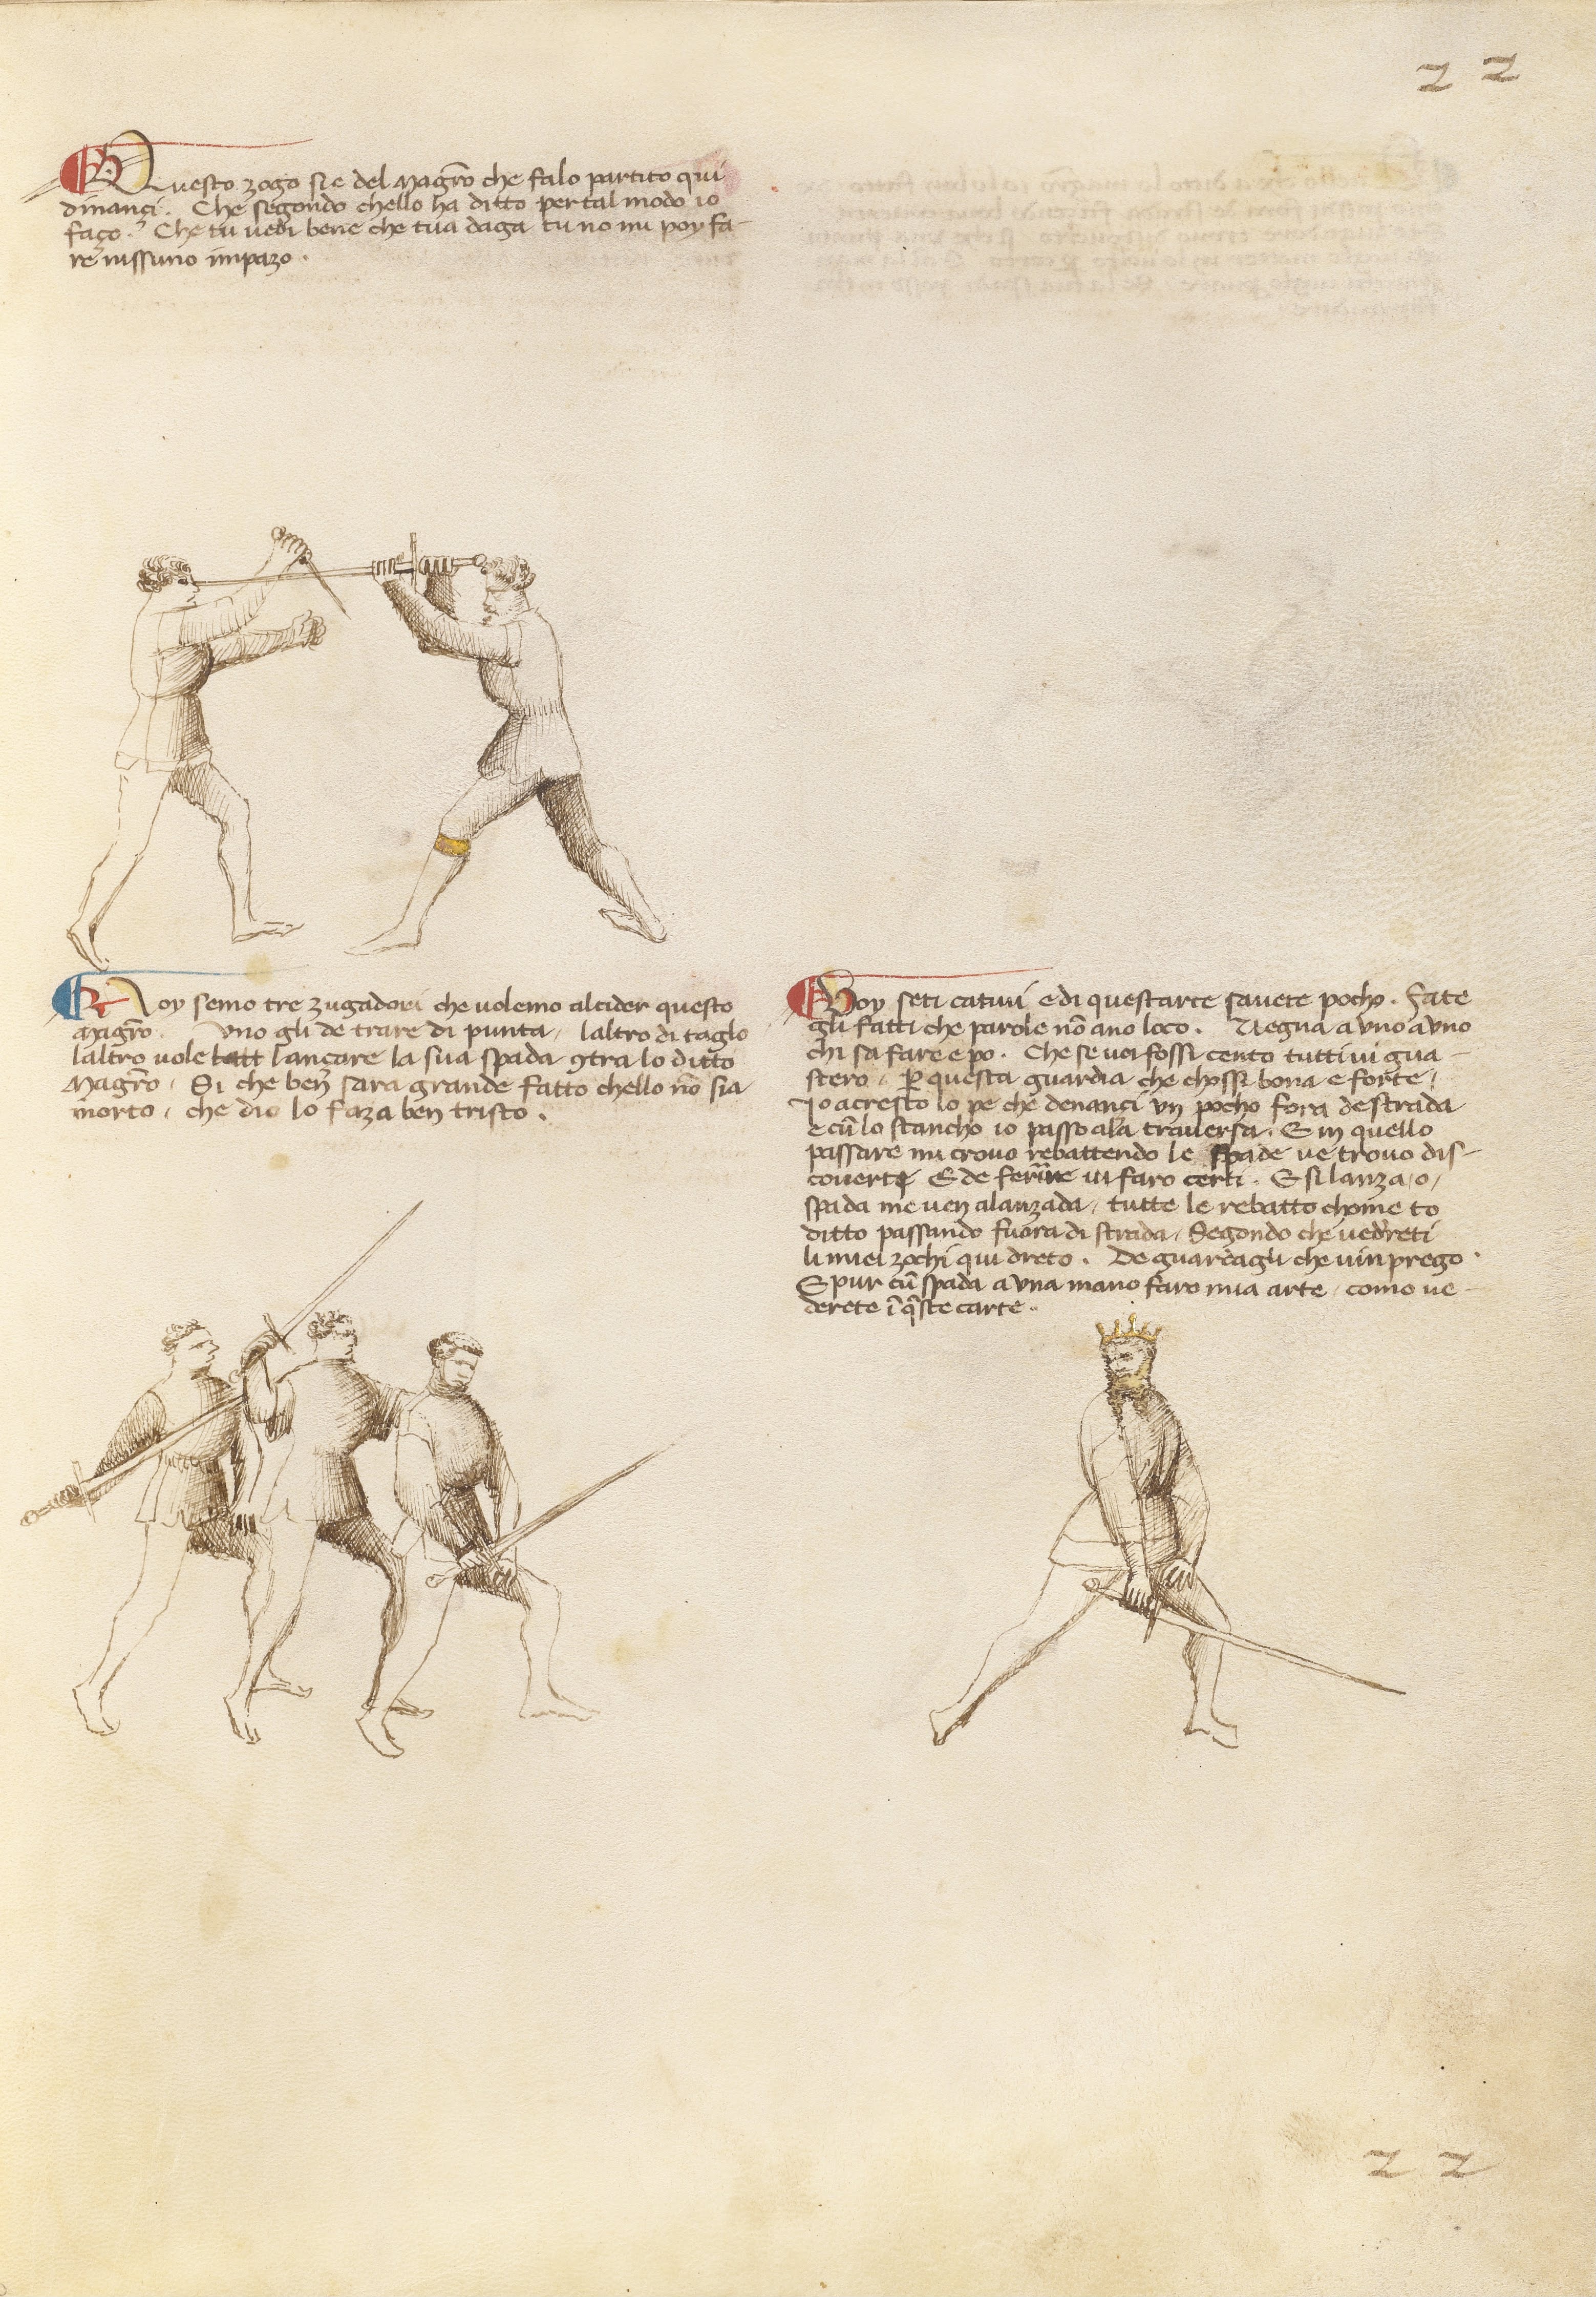 22
Questo zogo sie del Magrō che fa lo partito qui
dinançi. Che segondo chello ha ditto per tal modo io
faço. Che tu vedi bene che tua daga tu no mi poy fa-
re nissuno impazo.
Noy semo tre zugadori che volemo alcider questo
Magrō. Uno gli de trare di punta, laltro di taglo
laltro vole lançare la sua spada ꝯtra lo ditto
Magrō. Si che ben sara grande fatto chello nō sia
morto, che dio lo faza ben tristo.
Voy seti cativi e di questarte savete pocho. Fate
gli fatti che parole nō ano loco. Vegna a uno a uno
chi sa fare e po. Che se voi fossi cento tutti vi gua-
stero, ꝑ questa guardia che chossi bona e forte,
Io acresco lo pe che denançi un pocho fora de strada
e cū lo stancho io passo ala traversa. E in quello
passare mi crovo rebattendo le spade ve trovo dis-
coverti E de ferire vi faro certi. E si lanza, o,
spada me ven alanzada, tutte le rebatto chome to
ditto passando fuora di strada, Segondo che vedreti
li miei zochi qui dreto. De guardagli che vin prego.
E pur cū spada a una mano faro mia arte, como ve-
derete ī q̄ste carte.
22